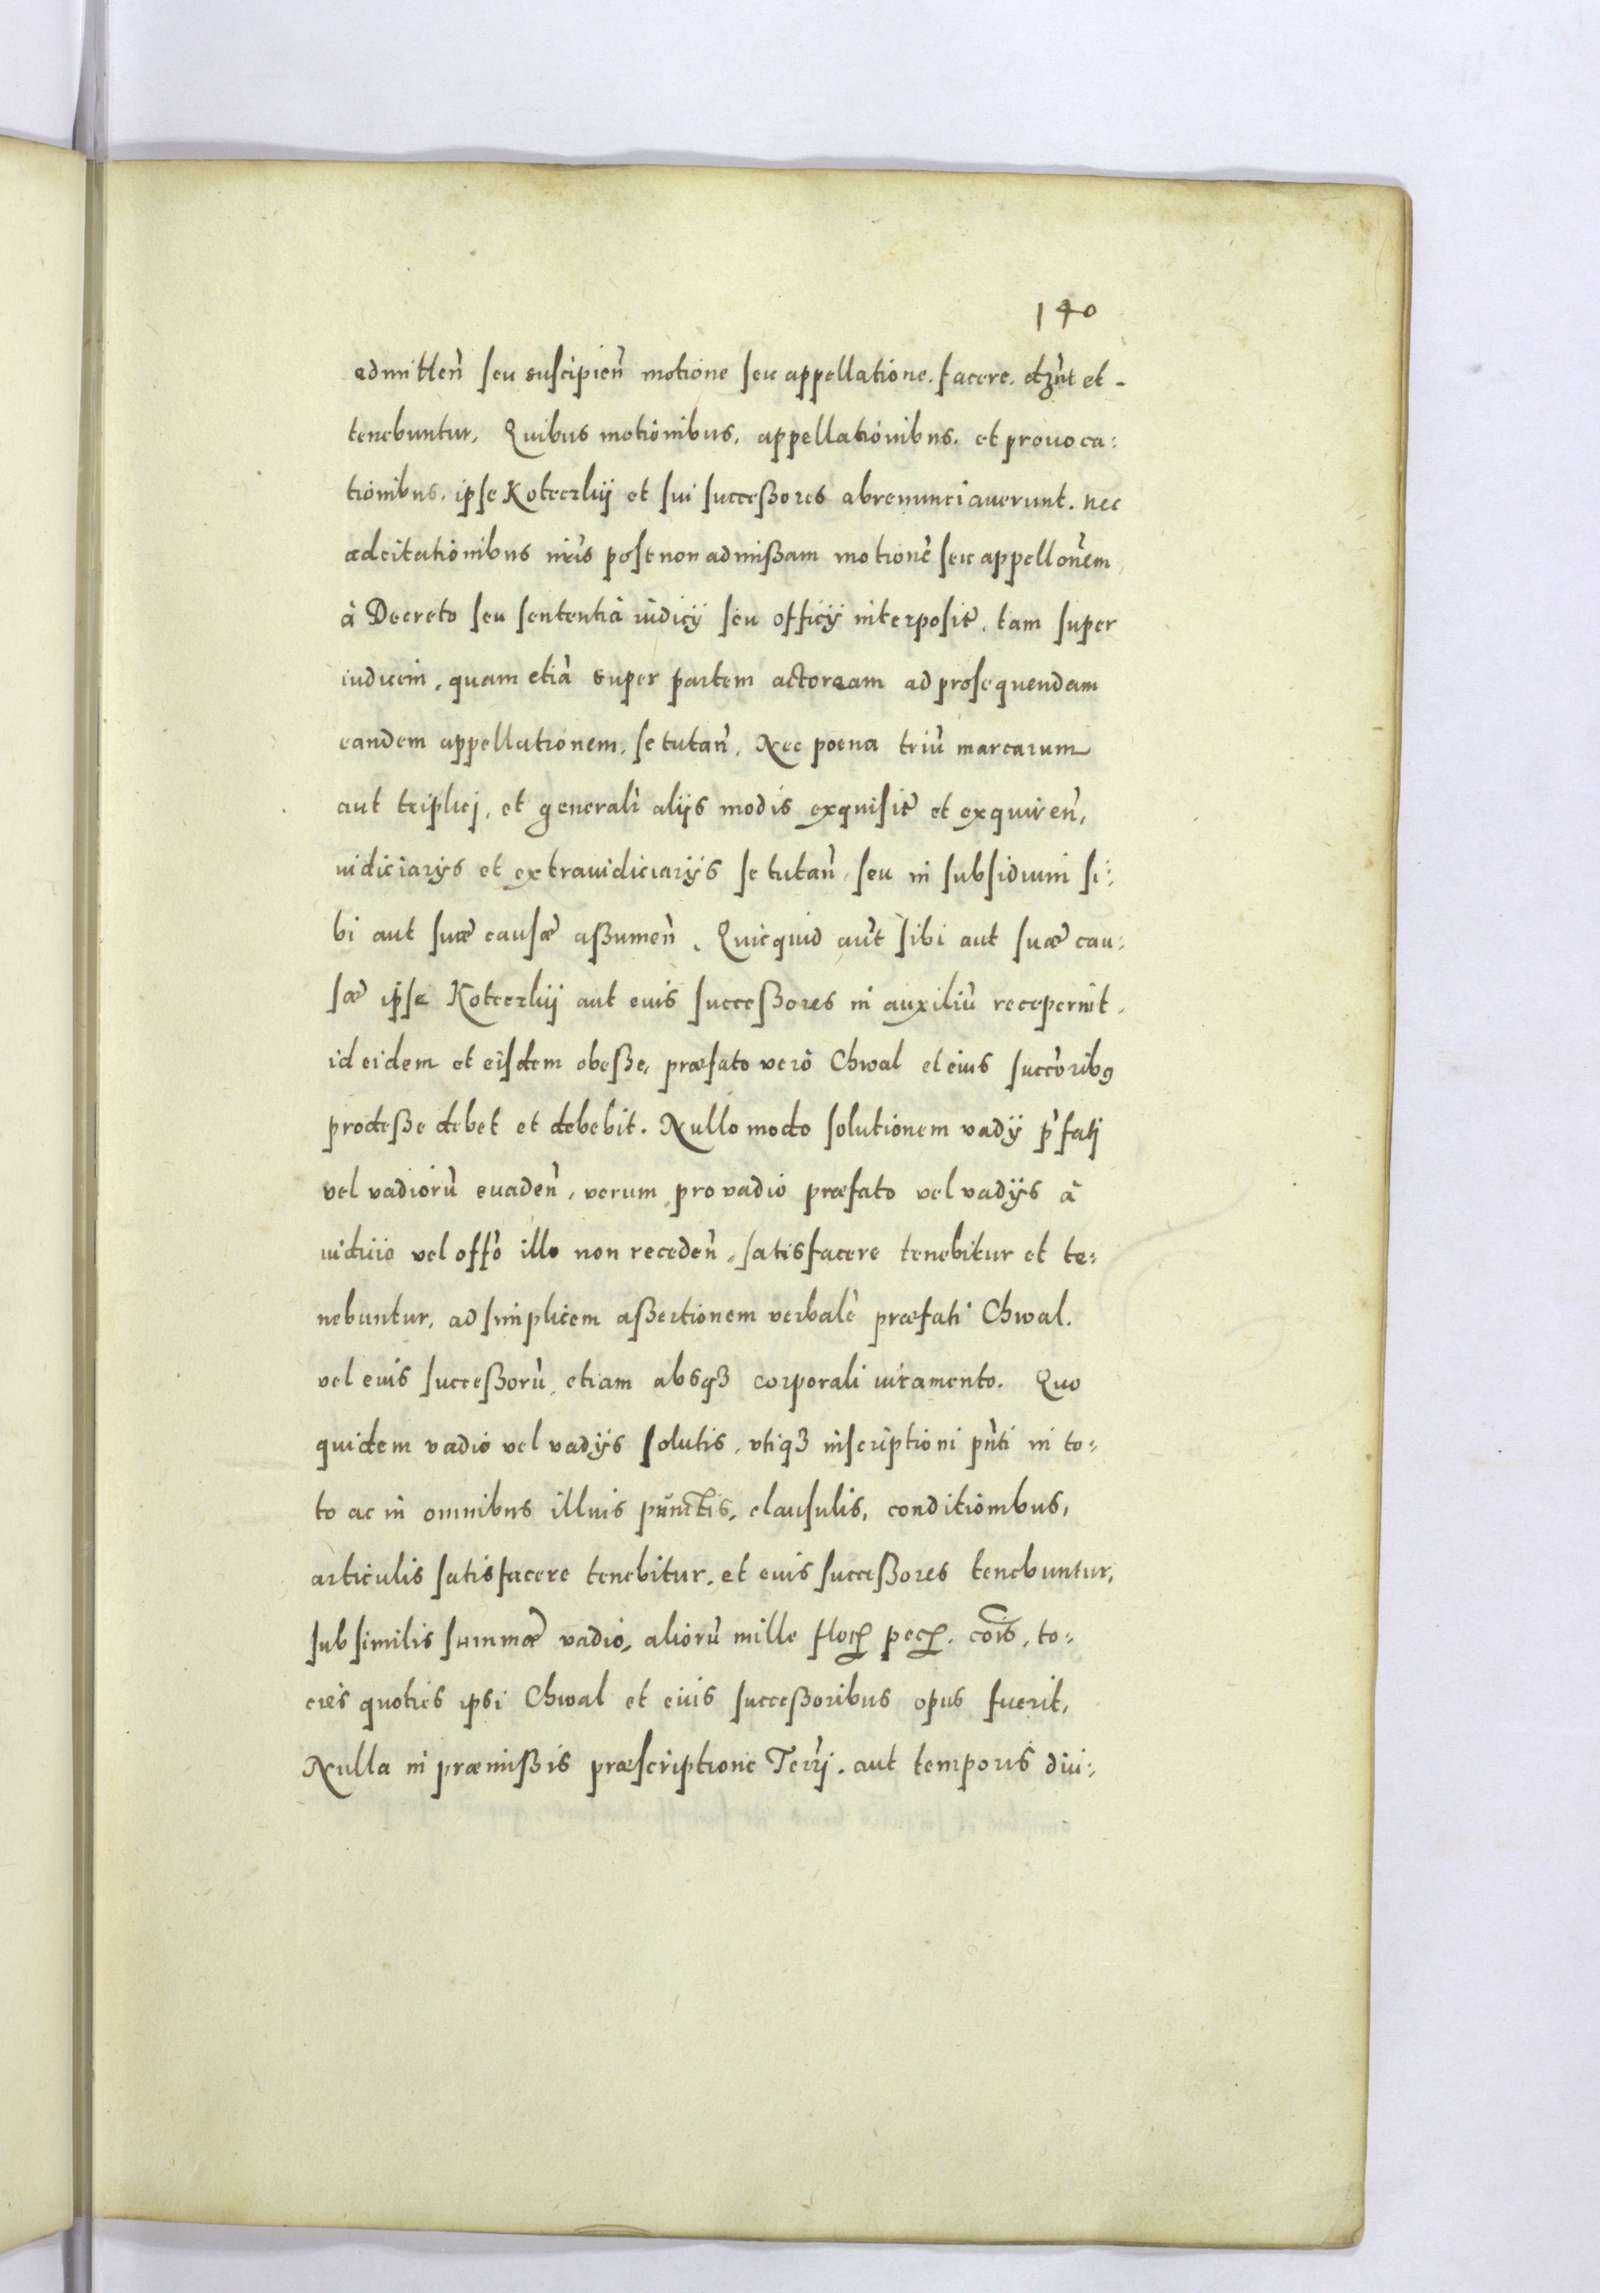 140
admitteñ seu suscipieñ motione seu appellatione. facere. et
tenebuntur, Quibus motionibus, appellationibus, et prouoca:
tionibus, ipse Koteczkij et sui successores abrenunciauerunt. nec
adcitationibus post non admissam motionẽ seu appellõnem
à Decreto seu sententia iudicij seu officij interposit. tam super
iudicem, quam etiã super partem actoream ad prosequendam
eandem appellationem, se tutañ, Nec poena triũ marcarum
aut triplici, et generali alijs modis exquisit et exquireñ,
iudiciarijs et extraiudiciarijs se tutañ, seu in subsidium si:
bi aut suæ causæ assumeñ. Quicquid aũt sibi aut suæ cau:
sæ ipse Koteczkij aut eius successores in auxiliũ receperint,
id eidem et eisdem obesse, præfato verò Chwal et eius succõribus
prodesse debet et debebit. Nullo modo solutionem vadij p̃fati
vel vadiorũ euadeñ, verum pro vadio præfato vel vadijs à
iudicio vel offõ illo non recedeñ, satisfacere tenebitur et te:
nebuntur, ad simplicem assertionem verbalẽ præfati Chwal.
vel eius successorũ, etiam absq3 corporali iuramento. Quo
quidem vadio vel vadijs solutis, vtiq3 inscriptioni pñti in to:
to ac in omnibus illius punctis, clausulis, conditionibus,
articulis satisfacere tenebitur, et eius successores tenebuntur,
sub similis summæ vadio, aliorũ mille flor. pec. cõis, to:
cies quoties ipsi Chwal et eius successoribus opus fuerit,
Nulla in præmissis præscriptione Terrj. aut temporis diu: